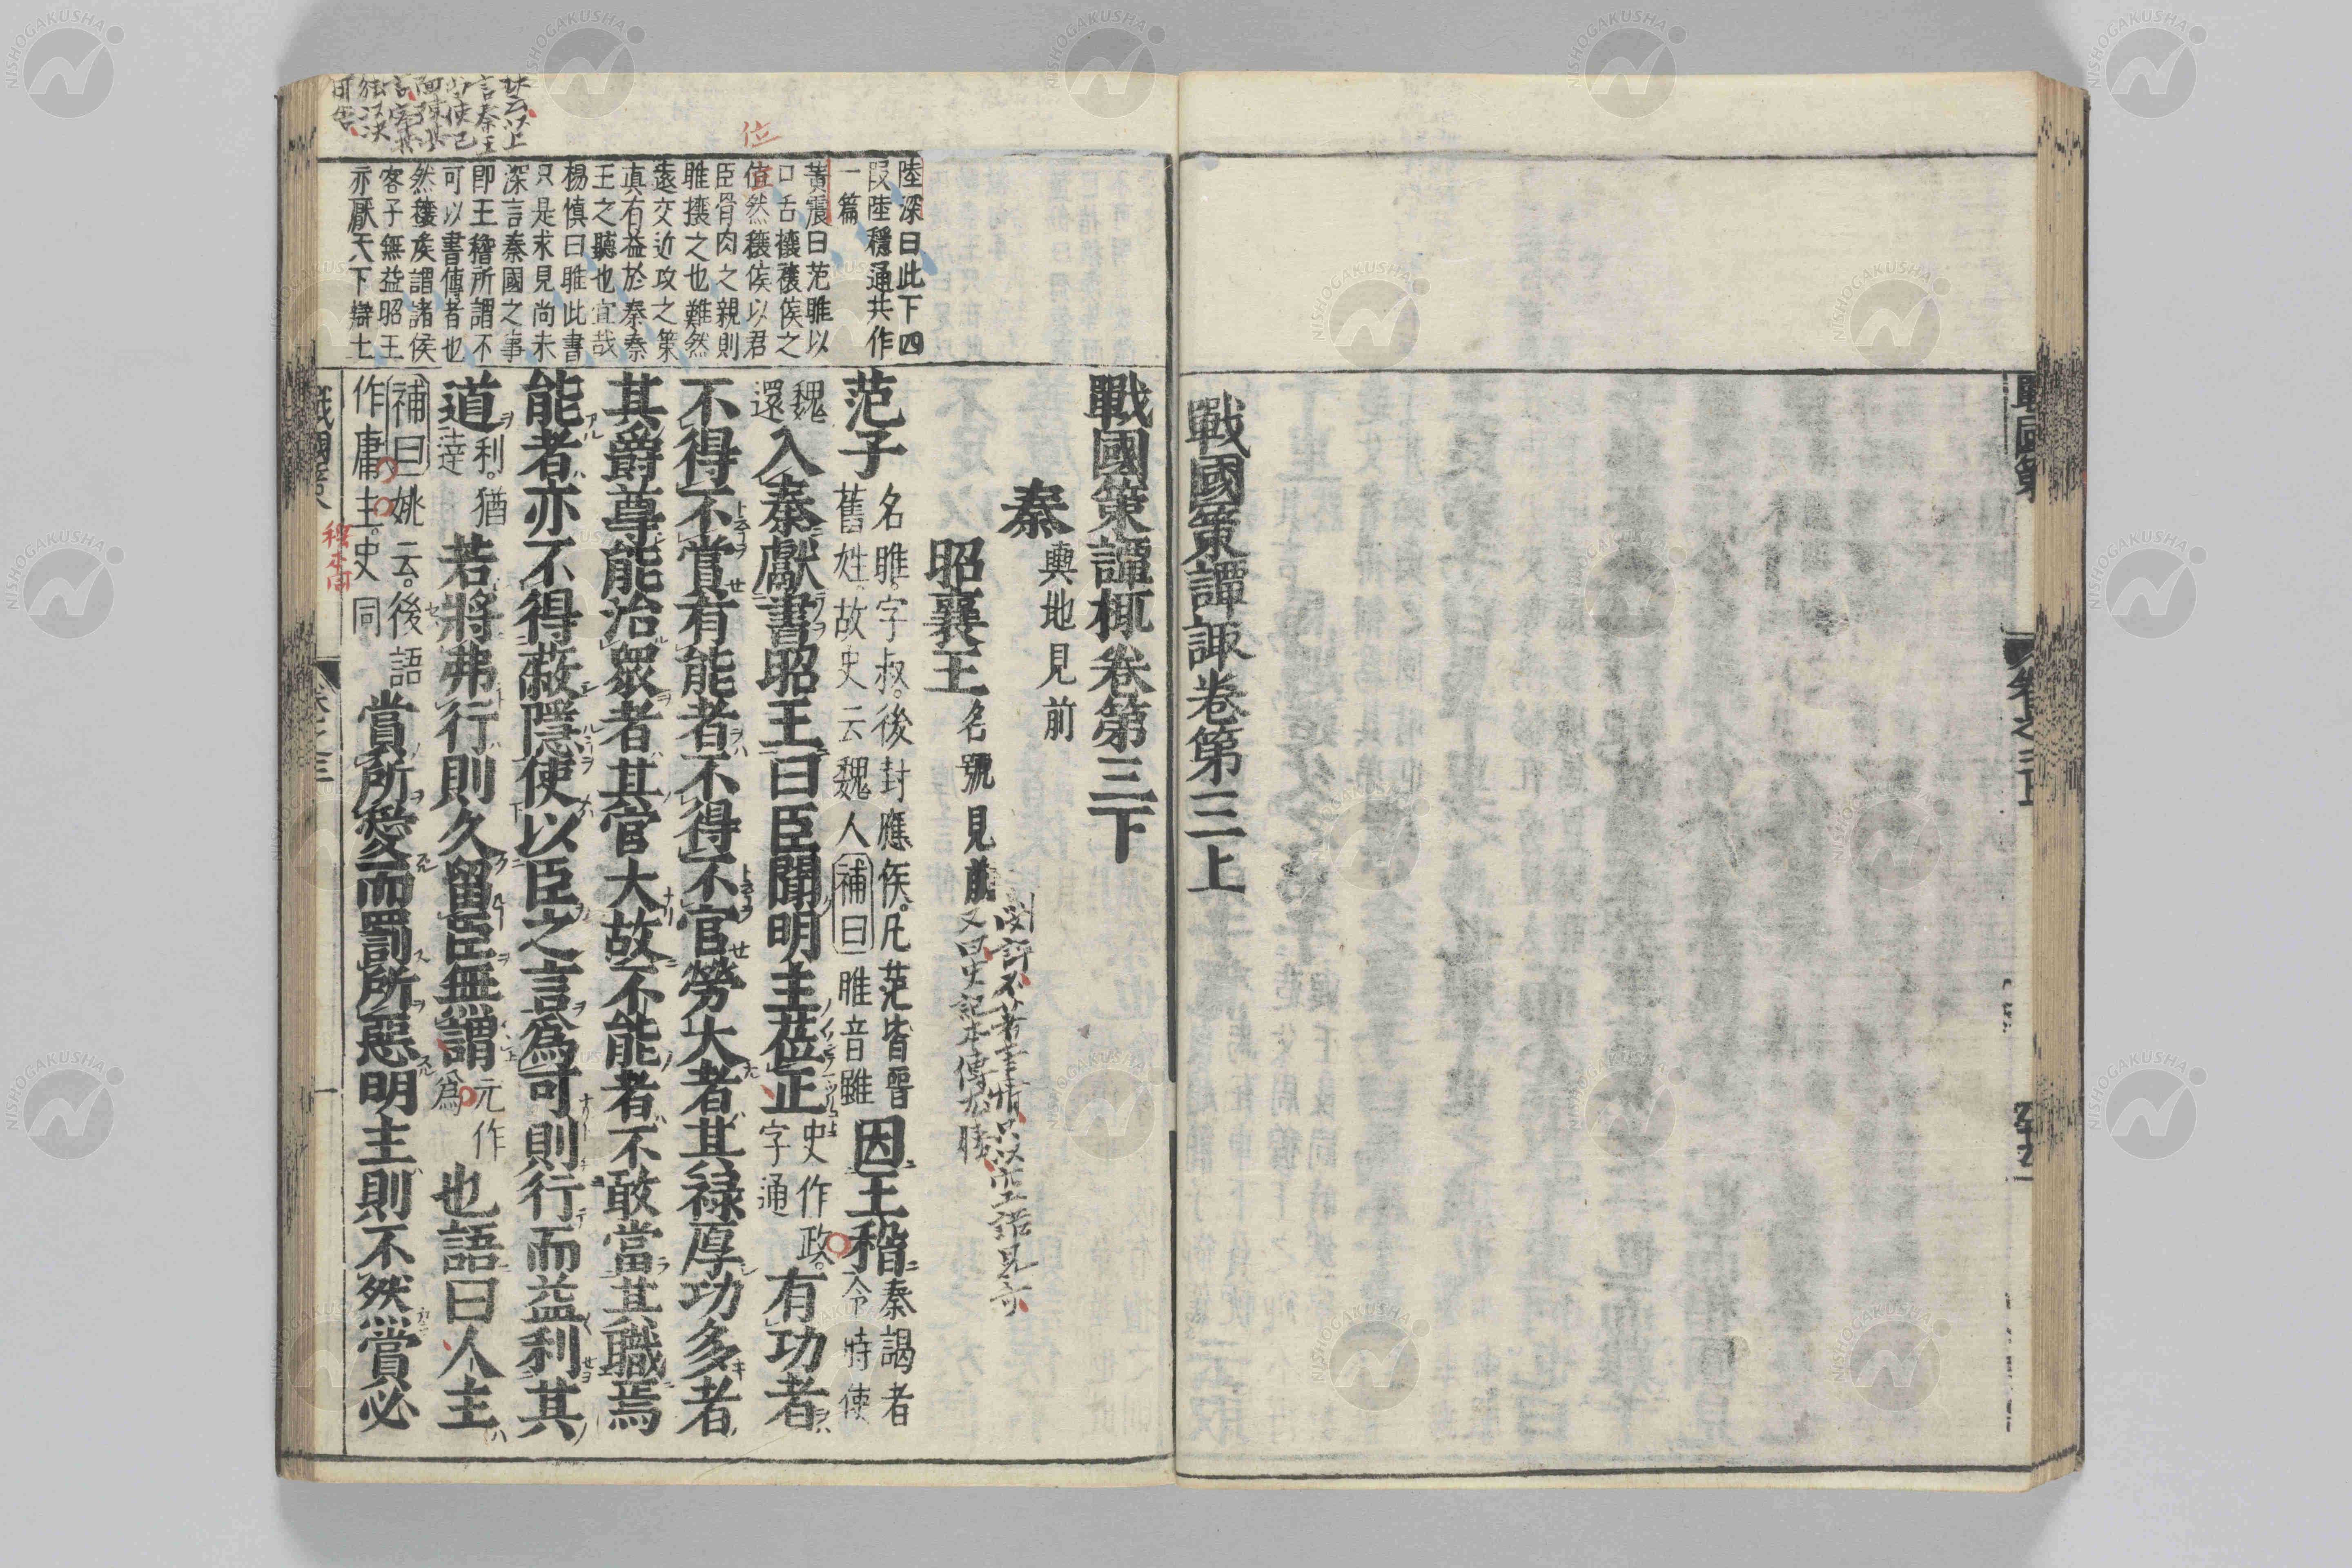 戰國策譚諏卷第三上
戰國策譚棷卷第三下
秦 輿地見前
昭襄王 名號見前
范子 名雎。字叔。後封應侯。凡范皆晉 舊姓。故史云魏人 補曰 雎音雖 因王稽 秦謁者 令時使
魏 還 入秦獻書昭王曰臣聞明主莅正 史作政。 字通 有功者
不得不賞有能者不得不官勞大者其祿厚功多者
其爵尊能治眾者其官大故不能者不敢當其職焉
能者亦不得蔽隱使以臣之言爲可則行而益利其
道 利。猶 逹 若將弗行則久留臣無謂 元作 爲 也語曰人主
補曰 姚云。後語 作庸主。史同 賞所愛而罰所惡明主則不然賞必
陸深曰此下四
段陸穩通共作
一篇
黃震曰范雎以
口舌攘穰侯之
值然穰侯以君
臣骨肉之親則
雎攘之也難然
遠交近攻之策
真有益於秦秦
王之聽也宜哉
楊慎曰雎此書
只是求見尚未
深言秦國之事
即王稽所謂不
可以書傳者也
然穰侯謂諸侯
客子無益昭王
亦厭天下辯士
位
戰國策
卷之三
一
NISHOGAKUSHA